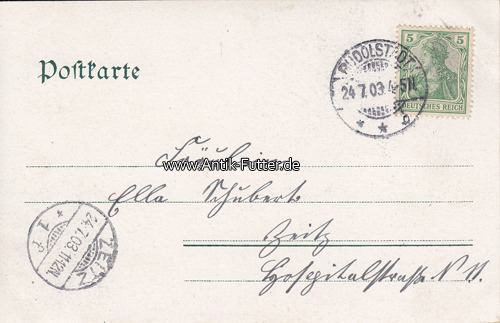 Postkarte
5 5
DEUTSCHES REICH
RUDOLSTADT
24.7.03.4-5N.
Fräulein
www.Antik-Futter.de
Ella Schubert
Zeitz
Hospitalstraße N 11.
ZEITZ
24.7.03.11-12N.
1